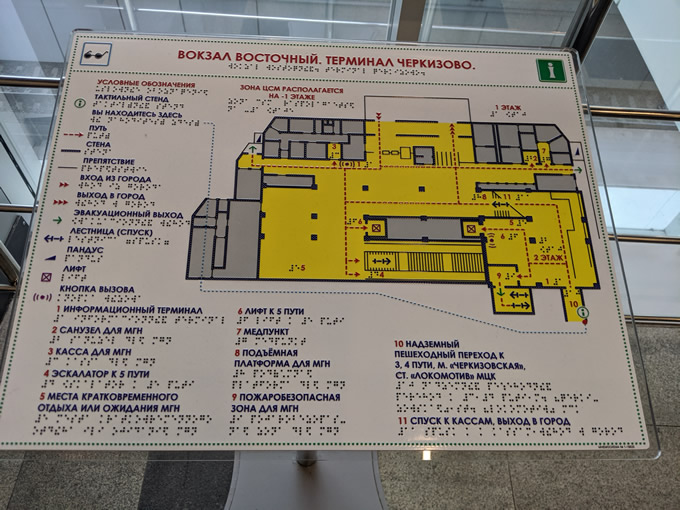 ВОКЗАЛ ВОСТОЧНЫЙ. ТЕРМИНАЛ ЧЕРКИЗОВО.
УСЛОВНЫЕ ОБОЗНАЧЕНИЯ
ТАКТИЛЬНЫЙ СТЕНД
ВЫ НАХОДИТЕСЬ ЗДЕСЬ
ПУТЬ
СТЕНА
ПРЕПЯТСТВИЕ
ВХОД ИЗ ГОРОДА
ВЫХОД В ГОРОД
ЭВАКУАЦИОННЫЙ ВЫХОД
ЛЕСТНИЦА (СПУСК)
ПАНДУС
ЛИФТ
КНОПКА ВЫЗОВА
ЗОНА ЦСМ РАСПОЛАГАЕТСЯ
НА -1 ЭТАЖЕ
1 ЭТАЖ
3
1
7
8
11
6
5
6
2 ЭТАЖ
5
4
9
1
10
1 ИНФОРМАЦИОННЫЙ ТЕРМИНАЛ
2 САНУЗЕЛ ДЛЯ МГН
3 КАССА ДЛЯ МГН
4 ЭСКАЛАТОР К 5 ПУТИ
5 МЕСТА КРАТКОВРЕМЕННОГО
ОТДЫХА ИЛИ ОЖИДАНИЯ МГН
6 ЛИФТ К 5 ПУТИ
7 МЕДПУНКТ
8 ПОДЪЁМНАЯ
ПЛАТФОРМА ДЛЯ МГН
9 ПОЖАРОБЕЗОПАСНАЯ
ЗОНА ДЛЯ МГН
10 НАДЗЕМНЫЙ
ПЕШЕХОДНЫЙ ПЕРЕХОД К
3, 4 ПУТИ, М. «ЧЕРКИЗОВСКАЯ»,
СТ. «ЛОКОМОТИВ» МЦК
11 СПУСК К КАССАМ, ВЫХОД В ГОРОД